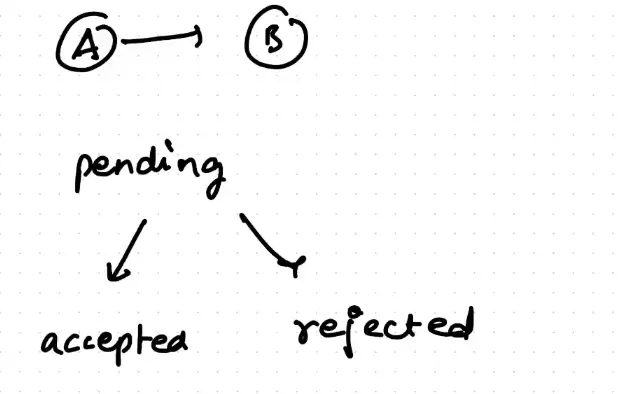 A B
pending
accepted rejected